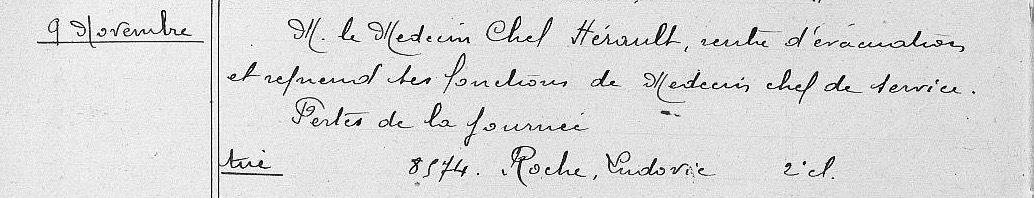 9 Novembre
M. le Medecin Chef Hérault, rentre d'évacuation
et reprend ses fonctions de Medecin chef de service.
Pertes de la journée
tué 8574. Roche, Ludovic 2e cl.